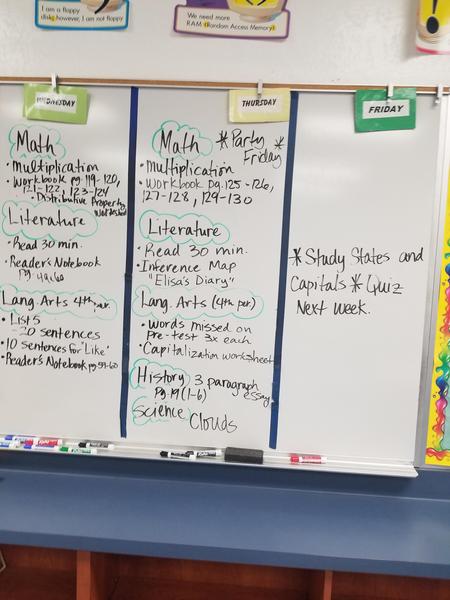 I am a floppy
disk, however, I am not floppy
We need more
RAM (Random Access Memory)
WEDNESDAY
Math
• Multiplication
• Workbook pg. 119-120,
121-122, 123-124
• Distributive Property
Worksheet
Literature
• Read 30 min.
• Reader's Notebook
Lang. Arts 4th per.
• List 5
- 20 sentences
• 10 sentences for "Like"
• Reader's Notebook pg. 59-60
THURSDAY
Math * Party
Friday *
• Multiplication
• Workbook pg. 125-126,
127-128, 129-130
Literature
• Read 30 min.
• Inference Map
"Elisa's Diary"
Lang. Arts (4th per.)
• Words missed on
Pre-test 3x each
• Capitalization worksheet
History 3 paragraph
essay
pg. 19 (1-6)
Science Clouds
FRIDAY
* Study States and
Capitals * Quiz
Next week.